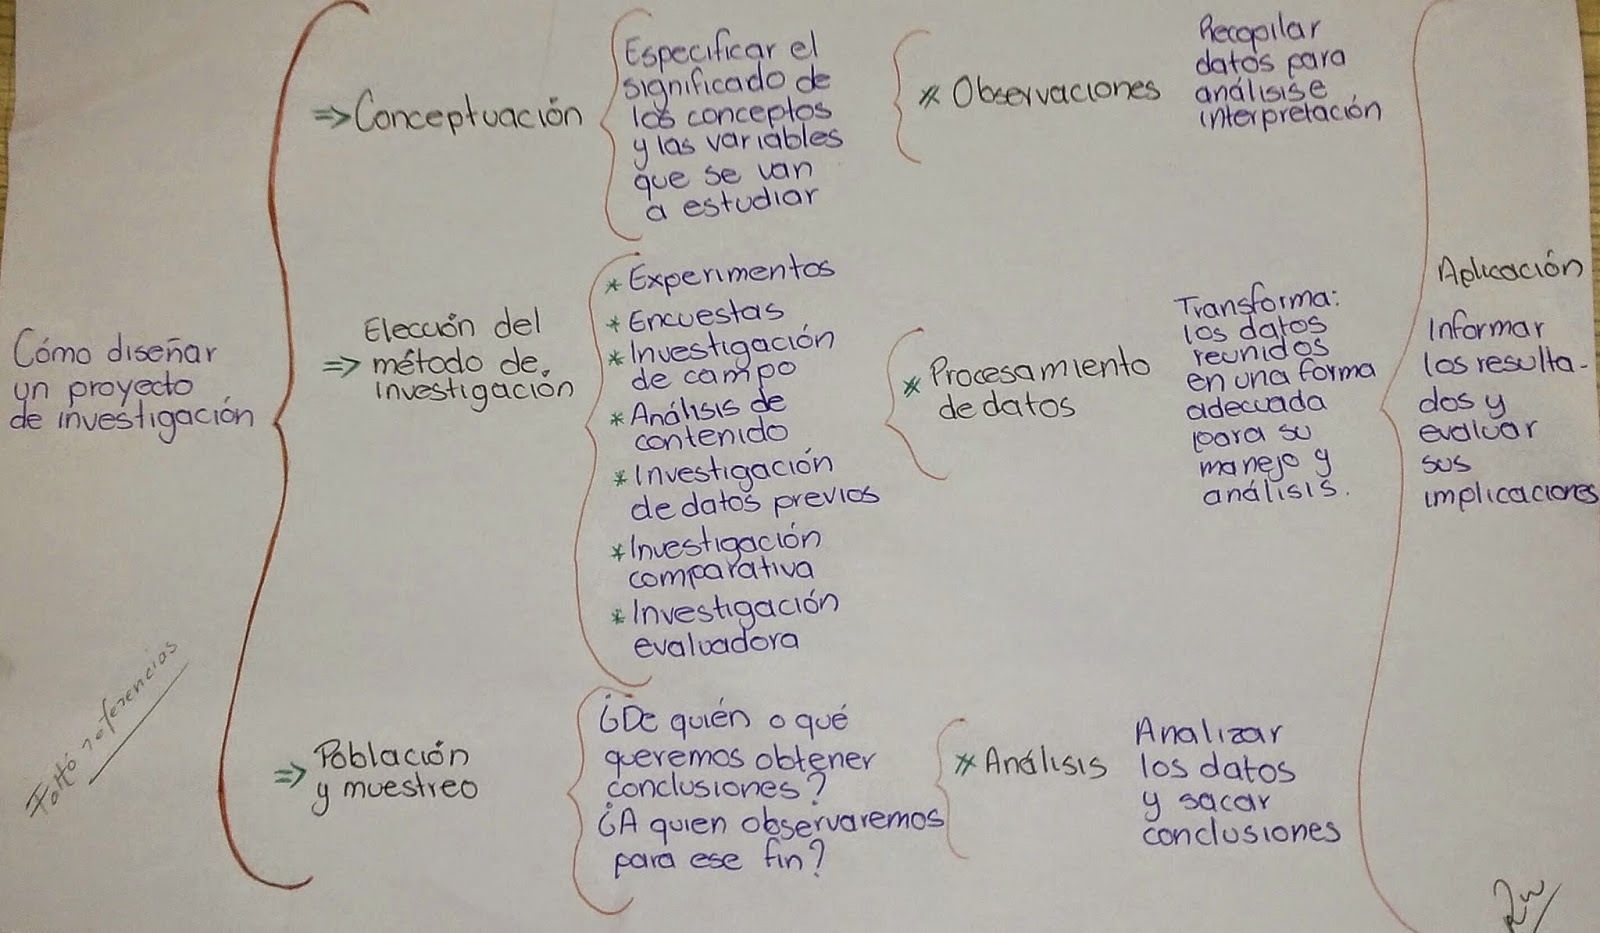 Cómo diseñar
un proyecto
de investigación
=> Conceptuación
Especificar el
significado de
los conceptos
y las variables
que se van
a estudiar
* Observaciones
Recopilar
datos para
análisis e
interpretación
=> Elección del
método de
investigación
* Experimentos
* Encuestas
* Investigación
de campo
* Análisis de
contenido
* Investigación
de datos previos
* Investigación
comparativa
* Investigación
evaluadora
* Procesamiento
de datos
Transforma:
los datos
reunidos
en una forma
adecuada
para su
manejo y
análisis.
=> Población
y muestreo
¿De quién o qué
queremos obtener
conclusiones?
¿A quien observaremos
para ese fin?
* Análisis
Analizar
los datos
y sacar
conclusiones
Aplicación
Informar
los resulta-
dos y
evaluar
sus
implicaciones
Faltó referencias